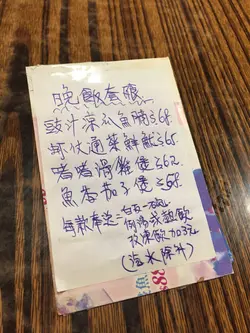 晚飯套餐
豉汁涼瓜魚腩$68
虾仔通菜鮮魷$65
啫啫滑雞煲$62
魚香茄子煲$58
每款奉送:白飯一碗
例湯或熱飲
改凍飲加3元
(汽水除外)